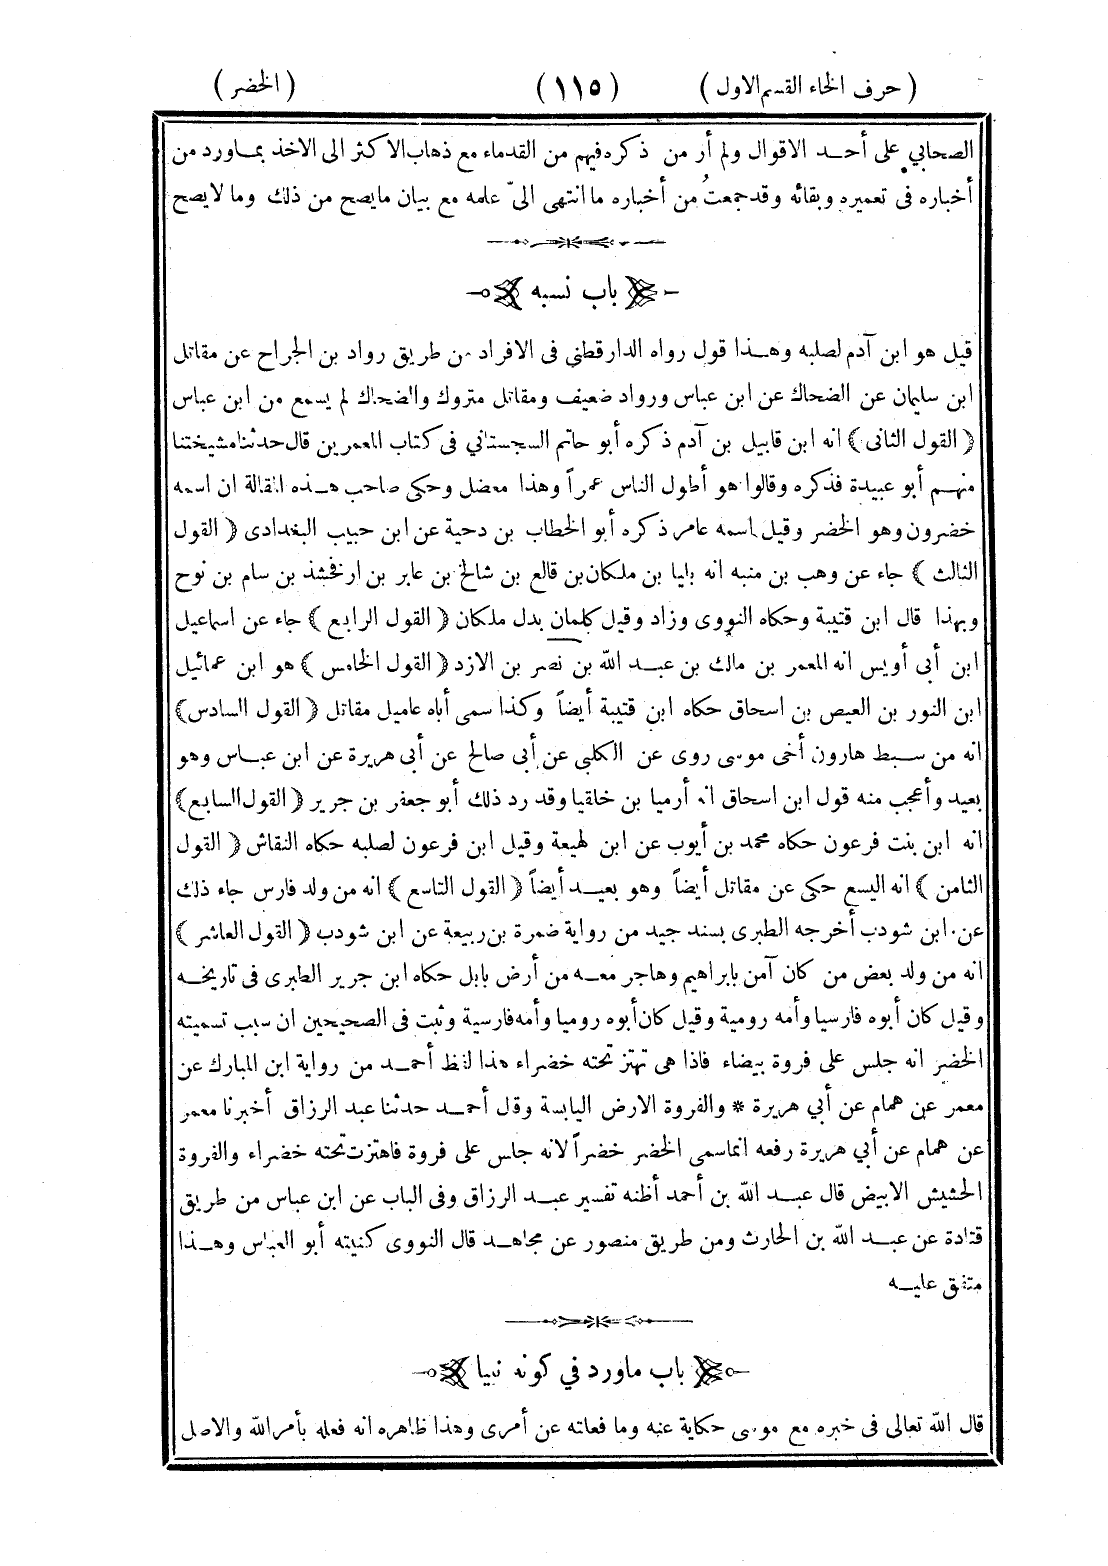 ( حرف الخاء القسم الاول ) ( ١١٥ ) ( الخضر )
الصحابي على أحد الاقوال ولم أر من ذكره فيهم من القدماء مع ذهاب الاكثر الى الاخذ بماورد من
أخباره فى تعميره وبقائه وقد جمعتُ من أخباره ما انتهى الىّ علمه مع بيان مايصح من ذلك وما لايصح
باب نسبه
قيل هو ابن آدم لصلبه وهذا قول رواه الدارقطنى فى الافراد من طريق رواد بن الجراح عن مقاتل
ابن سليمان عن الضحاك عن ابن عباس ورواد ضعيف ومقاتل متروك والضحاك لم يسمع من ابن عباس
( القول الثانى ) انه ابن قابيل بن آدم ذكره أبو حاتم السجستاني فى كتاب المعمرين قال حدثنا مشيختنا
منهم أبو عبيدة فذكره وقالوا هو أطول الناس عمراً وهذا معضل وحكى صاحب هذه المقالة ان اسمه
خضرون وهو الخضر وقيل اسمه عامر ذكره أبو الخطاب بن دحية عن ابن حبيب البغدادى ( القول
الثالث ) جاء عن وهب بن منبه انه بليا بن ملكان بن قالع بن شالخ بن عابر بن ارفخشذ بن سام بن نوح
وبهذا قال ابن قتيبة وحكاه النووى وزاد وقيل كلمان بدل ملكان ( القول الرابع ) جاء عن اسماعيل
ابن أبي أويس انه المعمر بن مالك بن عبد الله بن نصر بن الازد ( القول الخامس ) هو ابن عمائيل
ابن النور بن العيص بن اسحاق حكاه ابن قتيبة أيضاً وكذا سمى أباه عاميل مقاتل ( القول السادس )
انه من سبط هارون أخى موسى روى عن الكلبى عن أبي صالح عن أبي هريرة عن ابن عباس وهو
بعيد وأعجب منه قول ابن اسحاق انه أرميا بن خلقيا وقد رد ذلك أبو جعفر بن جرير ( القول السابع )
انه ابن بنت فرعون حكاه محمد بن أيوب عن ابن لهيعة وقيل ابن فرعون لصلبه حكاه النقاش ( القول
الثامن ) انه اليسع حكى عن مقاتل أيضاً وهو بعيد أيضاً ( القول التاسع ) انه من ولد فارس جاء ذلك
عن ابن شودب أخرجه الطبرى بسند جيد من رواية ضمرة بن ربيعة عن ابن شودب ( القول العاشر )
انه من ولد بعض من كان آمن بابراهيم وهاجر معه من أرض بابل حكاه ابن جرير الطبرى فى تاريخه
وقيل كان أبوه فارسيا وأمه رومية وقيل كان أبوه روميا وأمه فارسية وثبت فى الصحيحين ان سبب تسميته
الخضر انه جلس على فروة بيضاء فاذا هى تهتز تحته خضراء هذا لفظ أحمد من رواية ابن المبارك عن
معمر عن همام عن أبي هريرة * والفروة الارض اليابسة وقل أحمد حدثنا عبد الرزاق أخبرنا معمر
عن همام عن أبي هريرة رفعه انماسمى الخضر خضراً لانه جلس على فروة فاهتزت تحته خضراء والفروة
الحشيش الابيض قال عبد الله بن أحمد أظنه تفسير عبد الرزاق وفى الباب عن ابن عباس من طريق
قتادة عن عبد الله بن الحارث ومن طريق منصور عن مجاهد قال النووى كنيته أبو العباس وهذا
متفق عليه
باب ماورد في كونه نبيا
قال الله تعالى فى خبره مع موسى حكاية عنه وما فعلته عن أمرى وهذا ظاهره انه فعله بأمر الله والاصل